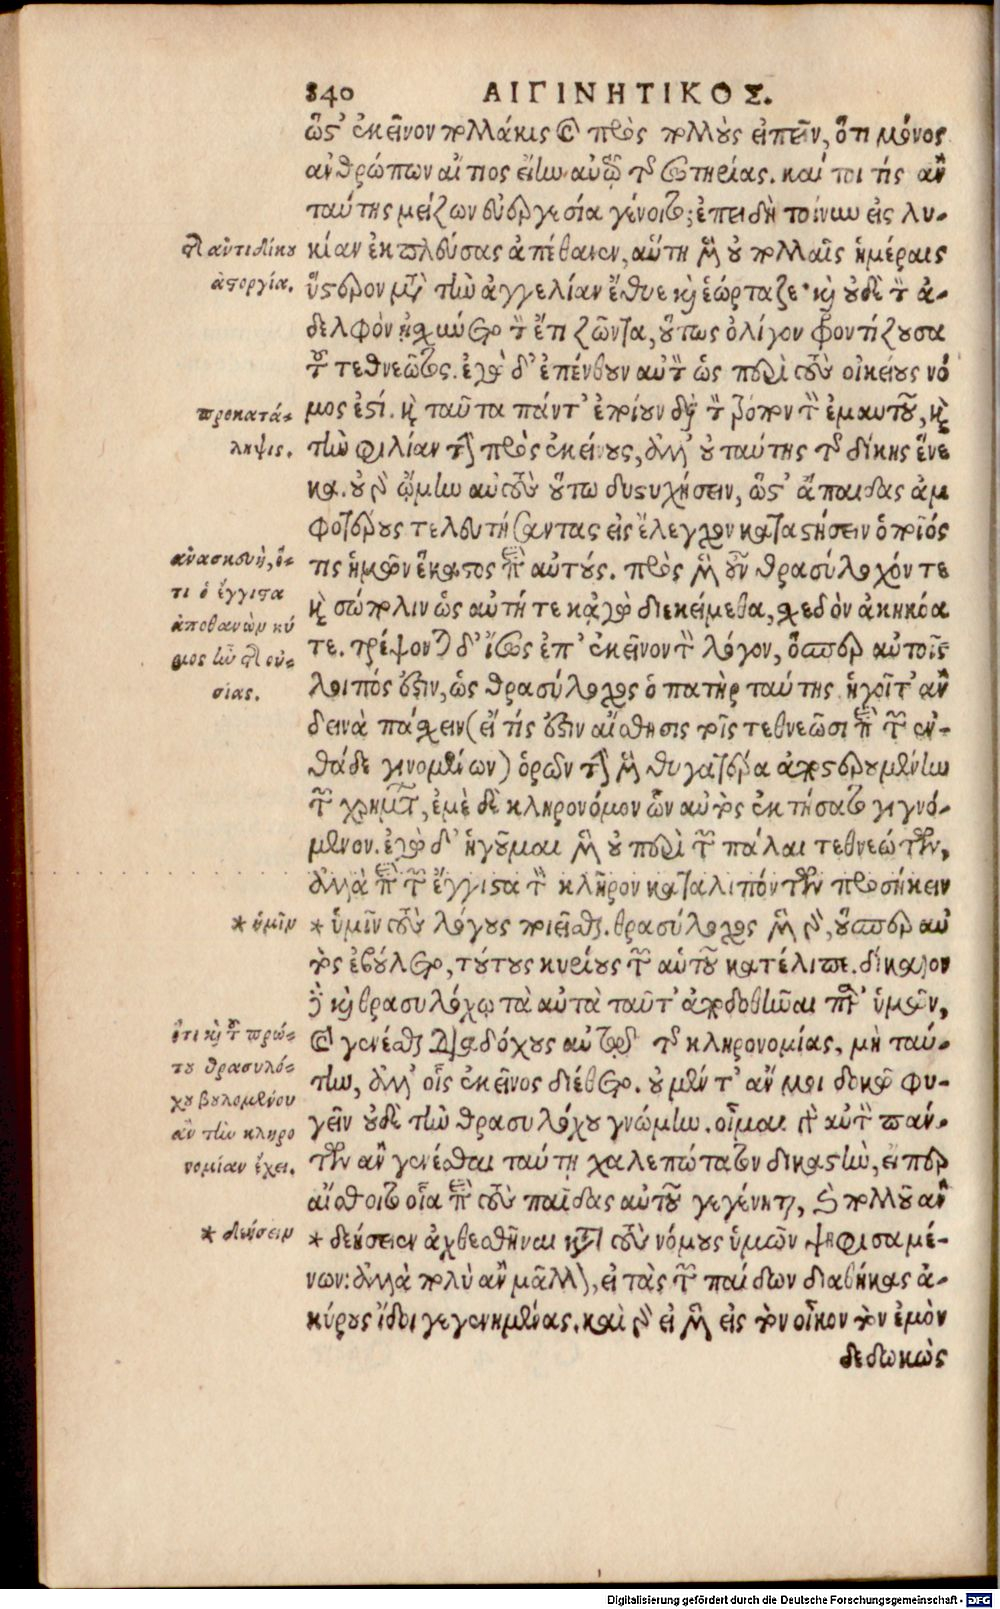 340 ΑΙΓΙΝΗΤΙΚΟΣ.
ὥστ' ἐκεῖνον πολλάκις καὶ πρὸς πολλοὺς εἰπεῖν, ὅτι μόνος
ἀνθρώπων αἴτιος εἴην αὐτῷ τῆς σωτηρίας. καί τοι τίς ἂν
ταύτης μείζων εὐεργεσία γένοιτο; ἐπειδὴ τοίνυν εἰς λυ-
τοῦ ἀντιδίκου
κίαν ἐκπλεύσας ἀπέθανεν, αὕτη μὲν οὐ πολλαῖς ἡμέραις
ἀστοργία.
ὕστερον μετὰ τὴν ἀγγελίαν ἔθυε καὶ ἑώρταζε· καὶ οὐδὲ τὸν ἀ-
δελφὸν ᾐσχύνετο τὸν ἔτι ζῶντα, οὕτως ὀλίγον φροντίζουσα
τοῦ τεθνεῶτος. ἐγὼ δ' ἐπένθουν αὐτὸν ὡς περὶ τοὺς οἰκείους νό
προκατά-
μος ἐστί. καὶ ταῦτα πάντ' ἐποίουν διὰ τὸν τρόπον τὸν ἐμαυτοῦ, καὶ
ληψις.
τὴν φιλίαν τὴν πρὸς ἐκείνους, ἀλλ' οὐ ταύτης τῆς δίκης ἕνε
κα. οὐ γὰρ ᾤμην αὐτοὺς οὕτω δυστυχήσειν, ὥστ' ἄπαιδας ἀμ
φοτέρους τελευτήσαντας εἰς ἔλεγχον καταστήσειν ὁποῖός
ἀνασκευὴ, ὅ-
τις ἡμῶν ἕκαστος περὶ αὐτούς. πρὸς μὲν οὖν θρασύλοχόν τε
τι ὁ ἔγγιστα
καὶ σώπολιν ὡς αὐτή τε κἀγὼ διεκείμεθα, σχεδὸν ἀκηκόα
ἀποθανὼν κύ
τε. τρέψονται δ' ἴσως ἐπ' ἐκεῖνον τὸν λόγον, ὅσπερ αὐτοῖς
ριος ἦν τῆς οὐ-
λοιπός ἐστιν, ὡς θρασύλοχος ὁ πατὴρ ταύτης ἡγοῖτ' ἂν
σίας.
δεινὰ πάσχειν (εἴ τίς ἐστιν αἴσθησις τοῖς τεθνεῶσι περὶ τῶν ἐν-
θάδε γινομένων) ὁρῶν τὴν μὲν θυγατέρα ἀποστερουμένην
τῶν χρημάτων, ἐμὲ δὲ κληρονόμον ὧν αὐτὸς ἐκτήσατο γιγνό-
μενον. ἐγὼ δ' ἡγοῦμαι μὲν οὐ περὶ τῶν πάλαι τεθνεώτων,
ἀλλὰ περὶ τῶν ἔγγιστα τὸν κλῆρον καταλιπόντων προσήκειν
* ὑμῖν
* ὑμῖν τοὺς λόγους ποιεῖσθαι. θρασύλοχος μὲν γὰρ, οὕσπερ αὐ
τὸς ἐβούλετο, τούτους κυρίους τῶν αὑτοῦ κατέλιπε. δίκαιον
δὲ καὶ θρασυλόχῳ τὰ αὐτὰ ταῦτ' ἀποδοθῆναι παρ' ὑμῶν,
ὅτι καὶ τοῦ πρώ-
καὶ γενέσθαι διαδόχους αὐτοῦ τῆς κληρονομίας, μὴ ταύ-
του θρασυλό-
την, ἀλλ' οἷς ἐκεῖνος διέθετο. οὐ μέν τ' ἄν μοι δοκῶ φυ-
χου βουλομένου
γεῖν οὐδὲ τὴν θρασυλόχου γνώμην. οἶμαι γὰρ αὐτὸν πάν-
ἂν τὴν κληρο
των ἂν γενέσθαι ταύτῃ χαλεπώτατον δικαστὴν, εἴπερ
νομίαν ἔχει.
αἴσθοιτο οἵα περὶ τοὺς παῖδας αὐτοῦ γεγένηται, καὶ πολλοῦ ἂν
* δεήσειν
* δεήσειεν ἀχθεσθῆναι κατὰ τοὺς νόμους ὑμῶν ψηφισαμέ-
νων: ἀλλὰ πολὺ ἂν μᾶλλον, εἰ τὰς τῶν παίδων διαθήκας ἀ-
κύρους ἴδοι γεγενημένας. καὶ γὰρ εἰ μὲν εἰς τὸν οἶκον τὸν ἐμὸν
δεδωκὼς
Digitalisierung gefördert durch die Deutsche Forschungsgemeinschaft - DFG